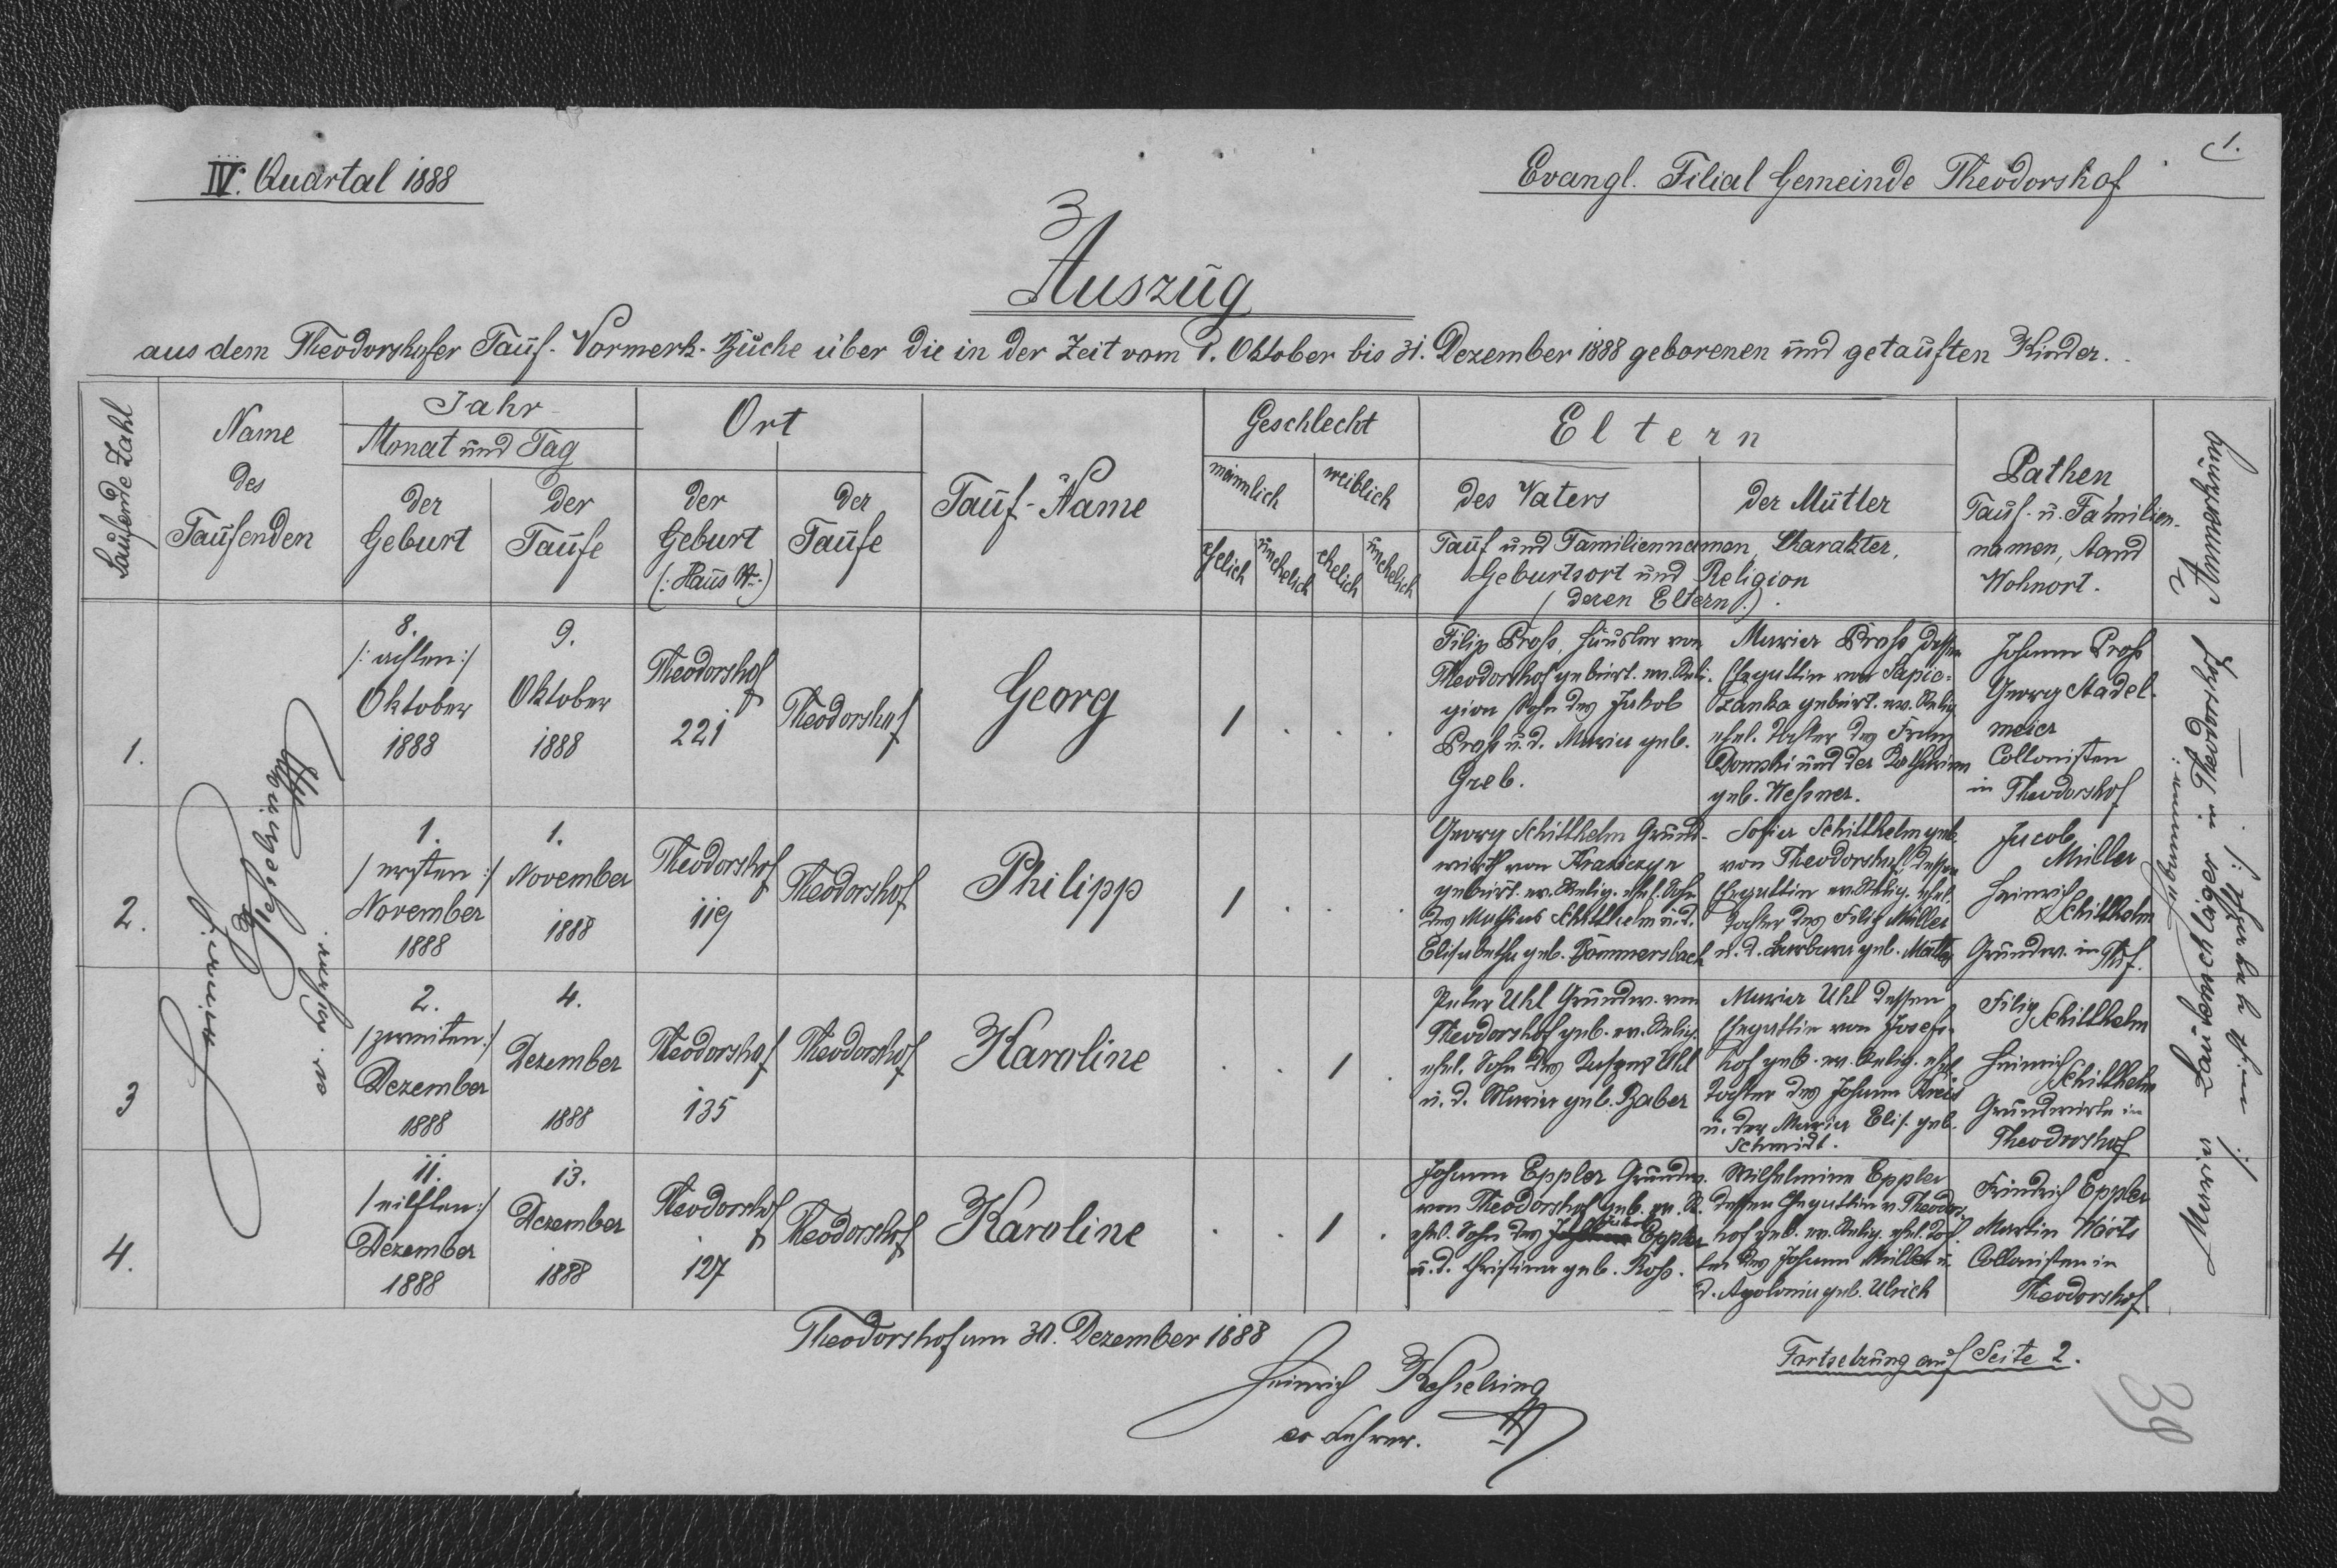 1.
IV. Quartal 1888
Evangl. Filial Gemeinde Theodorshof
Auszug
aus dem Theodorshofer Tauf-Vormerk-Buche über die in der Zeit vom 1. Oktober bis 31. Dezember 1888 geborenen und getauften Kinder.
Laufende Zahl
Name
des
Taufenden
Jahr
Monat und Tag
der
Geburt
der
Taufe
Ort
der
Geburt
(: Haus Nr. :)
der
Taufe
Tauf-Name
Geschlecht
männlich
weiblich
ehelich
unehelich
ehelich
unehelich
Eltern
des Vaters
der Mutter
Tauf und Familiennamen, Charakter,
Geburtsort und Religion
(deren Eltern.)
Pathen
Tauf- u. Familien-
namen, Stand
Wohnort.
Anmerkung
1.
Heinrich
Kesselring
ev. Lehrer.
8.
/: achten :/
Oktober
1888
9.
Oktober
1888
Theodorshof
221
Theodorshof
Georg
1 . . .
Filip Proß, Häusler von
Theodorshof gebürt. ev. Reli-
gion Sohn des Jakob
Proß u. d. Maria geb.
Greb.
Maria Proß dessen
Ehegattin von Sapie-
zanka gebürt. ev. Relig.
ehel. Tochter des Franz
Domski und der Katharina
geb. Weßner.
Johann Proß
Georg Stadel-
meier
Collonisten
in Theodorshof
2.
1.
/ ersten :/
November
1888
1.
November
1888
Theodorshof
119
Theodorshof
Philipp
1 . . .
Georg Schillhelm Grund-
wirth von Krasiczyn
gebürt. ev. Relig. ehel. Sohn
des Mathias Schillhelm u. d.
Elisabetha geb. Bommersbach
Sofia Schillhelm geb.
von Theodorshof dessen
Ehegattin ev. Relig. ehel.
Tochter des Filip Müller
u. d. Barbara geb.
Jacob
Müller
Heinrich
Schillhelm
Grundw. in Thf.
3
2.
/ zweiten :/
Dezember
1888
4.
Dezember
1888
Theodorshof
135
Theodorshof
Karoline
. . 1 .
Peter Uhl Grundw. von
Theodorshof geb. ev. Relig.
ehel. Sohn des Uhl
u. d. Maria geb. Baber
Maria Uhl dessen
Ehegattin von Josefs-
hof geb. ev. Relig. ehel.
Tochter des Johann Kreis
u. der Maria Elis. geb.
Schmidt.
Filip Schillhelm
Heinrich
Schillhelm
Grundwirte in
Theodorshof
4.
11.
/ eilften :/
Dezember
1888
13.
Dezember
1888
Theodorshof
127
Theodorshof
Karoline
. . 1 .
Johann Eppler Grundw.
von Theodorshof Geb. ev. R.
ehel. Sohn des Eppler
u. d. Christina geb. Roß.
Wilhelmine Eppler
dessen Ehegattin v. Theodors-
hof geb. ev. Relig. ehel. Toch-
ter des Johann Müller u.
d. Apolonia geb. Ulrich
Friedrich Eppler
Martin Wörts
Collonisten in
Theodorshof.
Maria Lautenschläger in Theodorshof /: Hebamme :/
Theodorshof am 30. Dezember 1888
Heinrich Kesselring
ev Lehrer.
Fortsetzung auf Seite 2.
39